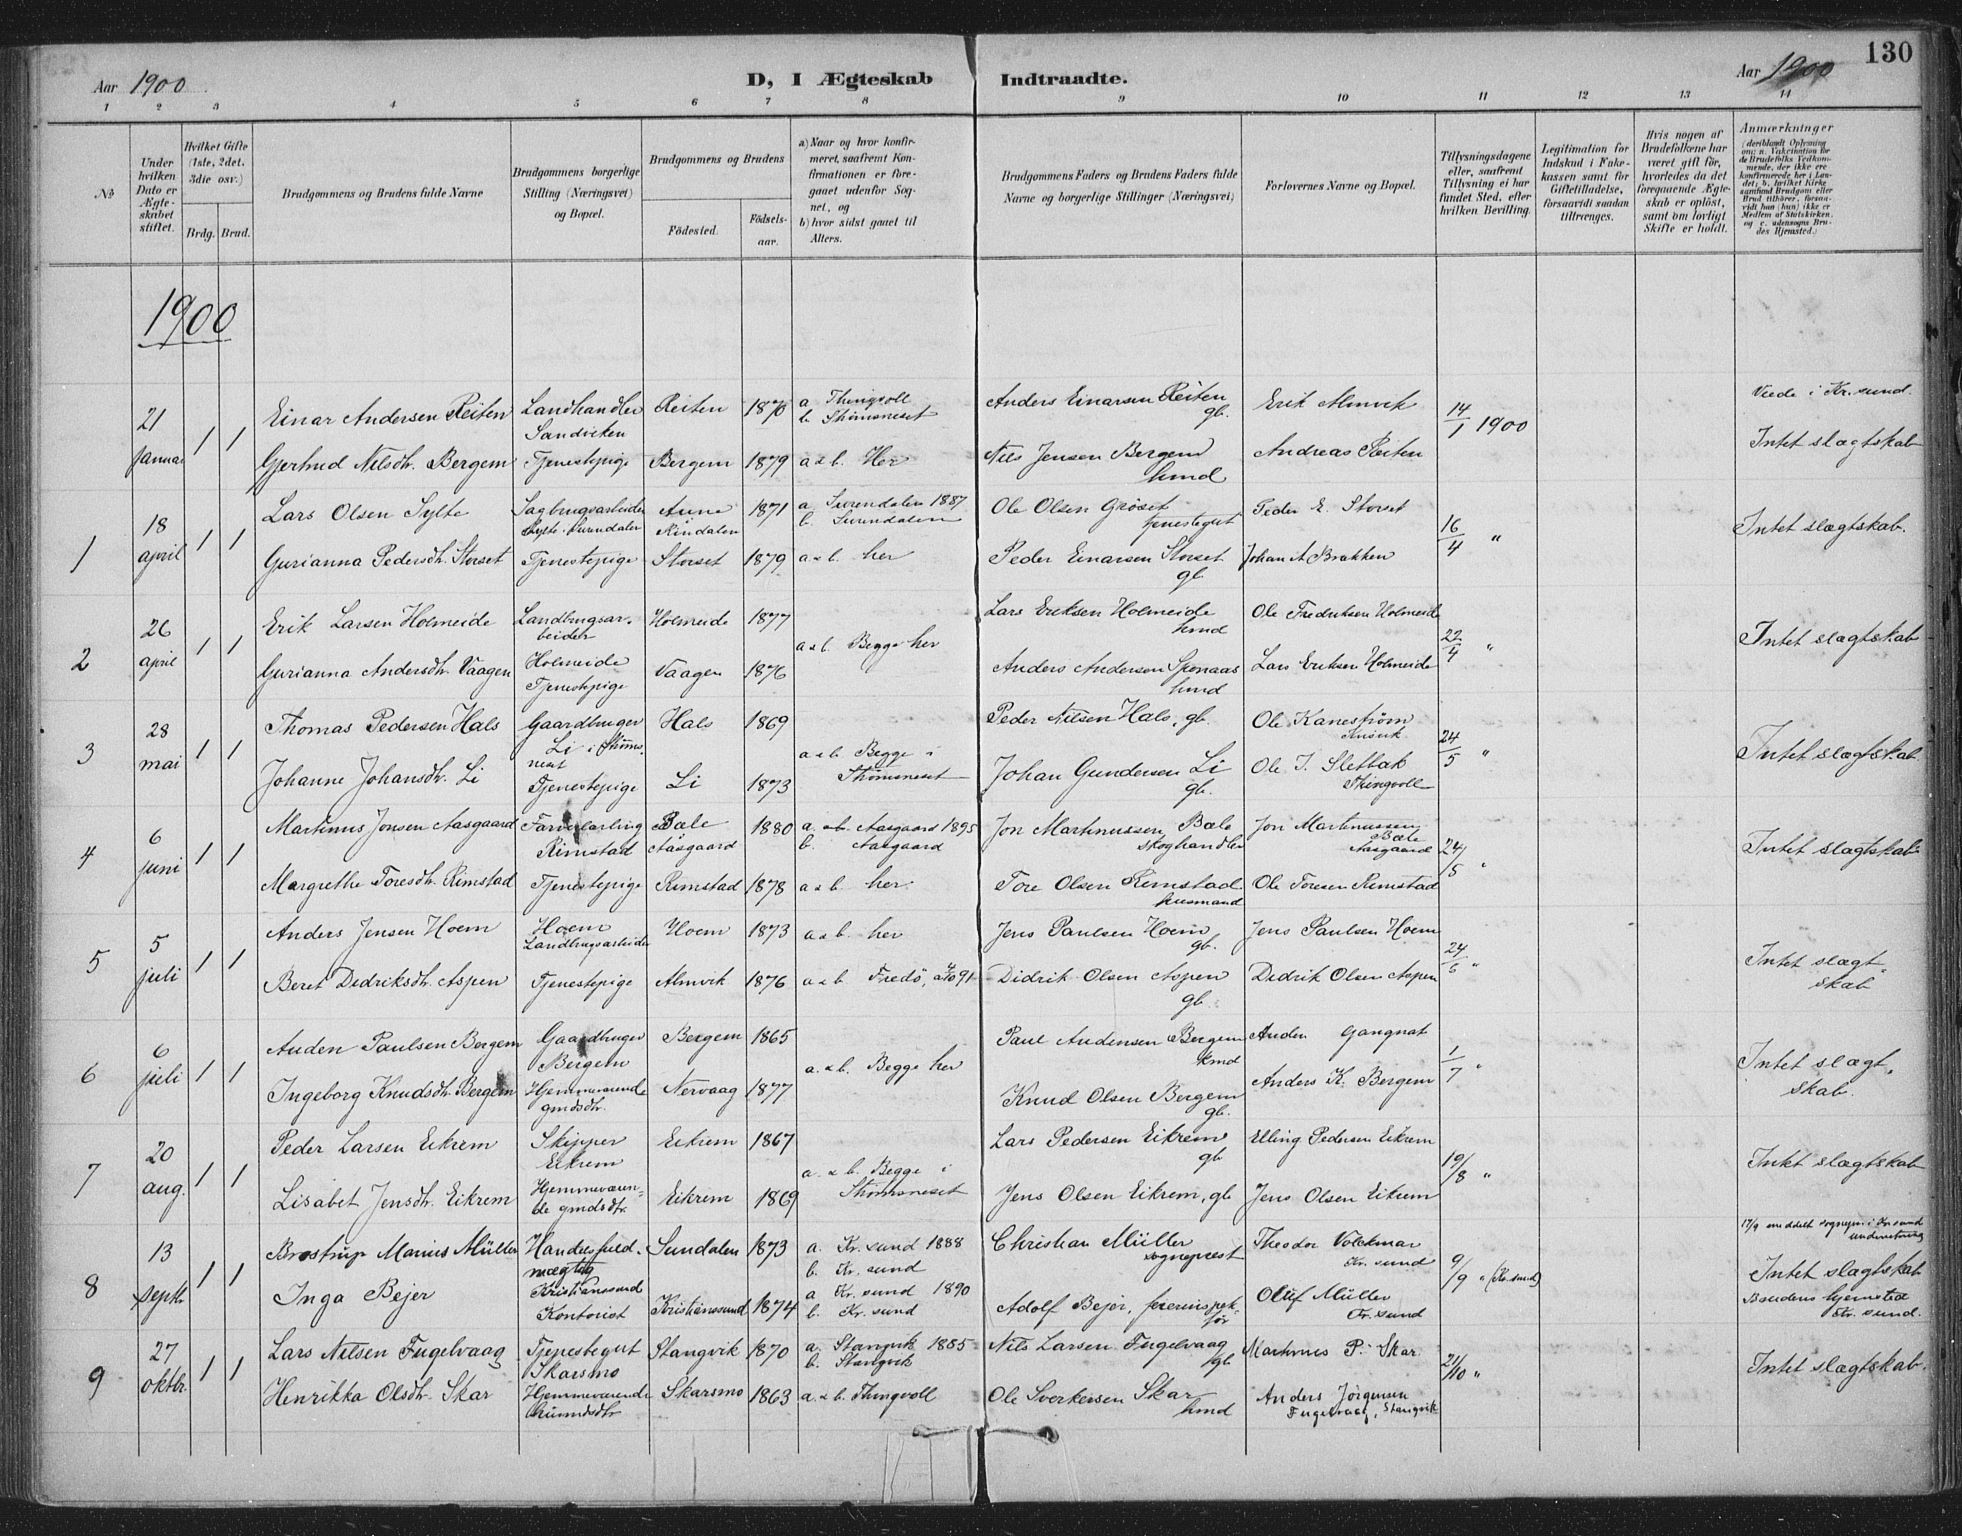 Aar 1900
D, I Ægteskab
Indtraadte.
Aar 1900
130
1 2 3 4 5 6 7 8 9 10 11 12 13 14
No
Under hvilken Dato er Ægteskabet stiftet.
Hvilket Gifte (1ste, 2det, 3die osv.)
Brdg. Brud.
Brudgommens og Brudens fulde Navne
Brudgommens borgerlige Stilling (Næringsvei) og Bopæl.
Brudgommens og Brudens
Fødested.
Fødselsaar.
a) Naar og hvor konfirmeret, saafremt Konfirmationen er foregaaet udenfor Sognet, og
b) hvor sidst gaaet til Alters.
Brudgommens Faders og Brudens Faders fulde Navne og borgerlige Stillinger (Næringsvei)
Forlovernes Navne og Bopæl.
Tillysningsdagene eller, saafremt Tillysning ei har fundet Sted, efter hvilken Bevilling.
Legitimation for Indskud i Enkekassen samt for Giftetilladelse, forsaavidt saadan tiltrænges.
Hvis nogen af Brudefolkene har været gift før, hvorledes da det foregaaende Ægteskab er opløst, samt om lovligt Skifte er holdt.
Anmærkninger (deriblandt Oplysning om: a. Vakcination for de Brudefolks Vedkommende, der ikke ere konfirmerede her i Landet; b. hvilket Kirkesamfund Brudgom eller Brud tilhører, forsaavidt han (hun) ikke er Medlem af Statskirken, og c. udensogns Brudes Hjemsted.)
1900
21 januar 1 1
Einar Andersen Reiten Landhandler Sandviken Reiten 1870 a Thingvoll b. Strømsneset Anders Einarsen Reiten gb. Erik Almvik 14/1 1900 Viede i Kr.sund.
Gjertrud Nilsdtr. Bergem Tjenestepige Bergem 1879 a & b. Her Nils Jensen Bergem hmd Andreas Reiten Intet slægtskab
1 18 april 1 1
Lars Olsen Sylte Sagbrugsarbeider Sylte Surendalen Aune Rindalen 1871 a. Surendalen 1887 b. Surendalen Ole Olsen Grøset tjenestegut Peder E. Storset 16/4 "
Gurianna Pedersdtr. Storset Tjenestepige Storset 1879 a & b. her Peder Einarsen Storset gb. Johan A Brakken Intet slægtskab.
2 26 april 1 1
Erik Larsen Holmeide Landbrugsarbeider Holmeide Holmeide 1877 a & b. Begge her Lars Eriksen Holmeide hmd Ole Fredriksen Holmeide 22/4 "
Gurianna Andersdtr. Vaagen Tjenestepige Vaagen 1876 Anders Andersen hmd Lars Eriksen Holmeide Intet slægtskab
3 28 mai 1 1
Thomas Pedersen Hals Gaardbruger Li i Strømsneset Hals 1869 a & b. Begge i Strømsneset Peder Nilsen Hals, gb. Ole Kanestrøm 24/5 "
Johanne Johansdtr. Li Tjenestepige Li 1873 Johan Gundersen Li gb. Ole J. Slettak Thingvoll Intet slægtskab.
4 6 juni 1 1
Martinus Jonsen Aasgaard Farverlærling Rimstad Bæle Aasgaard 1880 a. Aasgaard 1895 b. Aasgaard Jon Martinussen Bæle skoghandler Jon Martinussen Bæle Aasgaard 24/5 "
Margrethe Toresdtr. Rimstad Tjenestepige Rimstad 1878 a & b. her. Tore Olsen Rimstad husmand Ole Toresen Rimstad Intet slægtskab
5 5 juli 1 1
Anders Jensen Hoem Hoem Landbrugsarbeider Hoem 1873 a & b. her Jens Paulsen Hoem gb. Jens Paulsen Hoem 24/6 "
Beret Didriksdtr. Aspen Tjenestepige Almvik 1876 a & b. Fredø, 4/10 91 Didrik Olsen Aspen gb. Didrik Olsen Aspen Intet slægtskab
6 6 juli 1 1
Auden Paulsen Bergem Gaardbruger Bergem Bergem 1865 a. & b. Begge her Paul Audensen Bergem hmd Auden Gangnat 1/7 "
Ingeborg Knudsdtr. Bergem Hjemmeværende gmdsdtr. Nervaag 1877 Knud Olsen Bergem gb. Anders K. Bergem Intet slægtskab.
7 20 aug. 1 1
Peder Larsen Eikrem Skipper Eikrem Eikrem 1867 a. & b. Begge i Strømsneset Lars Pedersen Eikrem gb Elling Pedersen Eikrem 19/8 "
Lisabet Jensdtr. Eikrem Hjemmeværende gmdsdtr. Eikrem 1869 Jens Olsen Eikrem, gb Jens Olsen Eikrem Intet slægtskab
8 13 septbr 1 1
Brostrup Marius Müller Handelsfuldmægtig Kristianssund Sundalen 1873 a. Kr.sund 1888 b. Kr.sund Christian Müller sogneprest Theodor Volckmar Kr.sund 9/9 " (Kr.sund) 17/9 meddelt sognepr. i Kr.sund underretning
Inga Bejer Kontorist Kristianssund 1874 a Kr.sund 1890 b. Kr.sund Adolf Bejer, Oluf Müller Kr.sund Intet slægtskab Brudens hjemsted Kr.sund.
9 27 oktbr. 1 1
Lars Nilsen Fugelvaag Tjenestegut Skarsmo Stangvik 1870 a. Stangvik 1885 b. Stangvik Nils Larsen Fugelvaag gb Martinus P. Skar 21/10 "
Henrikka Olsdtr. Skar Hjemmeværende husmdsdtr Skarsmo 1863 a. & b. Thingvoll Ole Sverkersen Skar hmd Anders Jørgensen Fugelvaag, Stangvik Intet slægtskab.